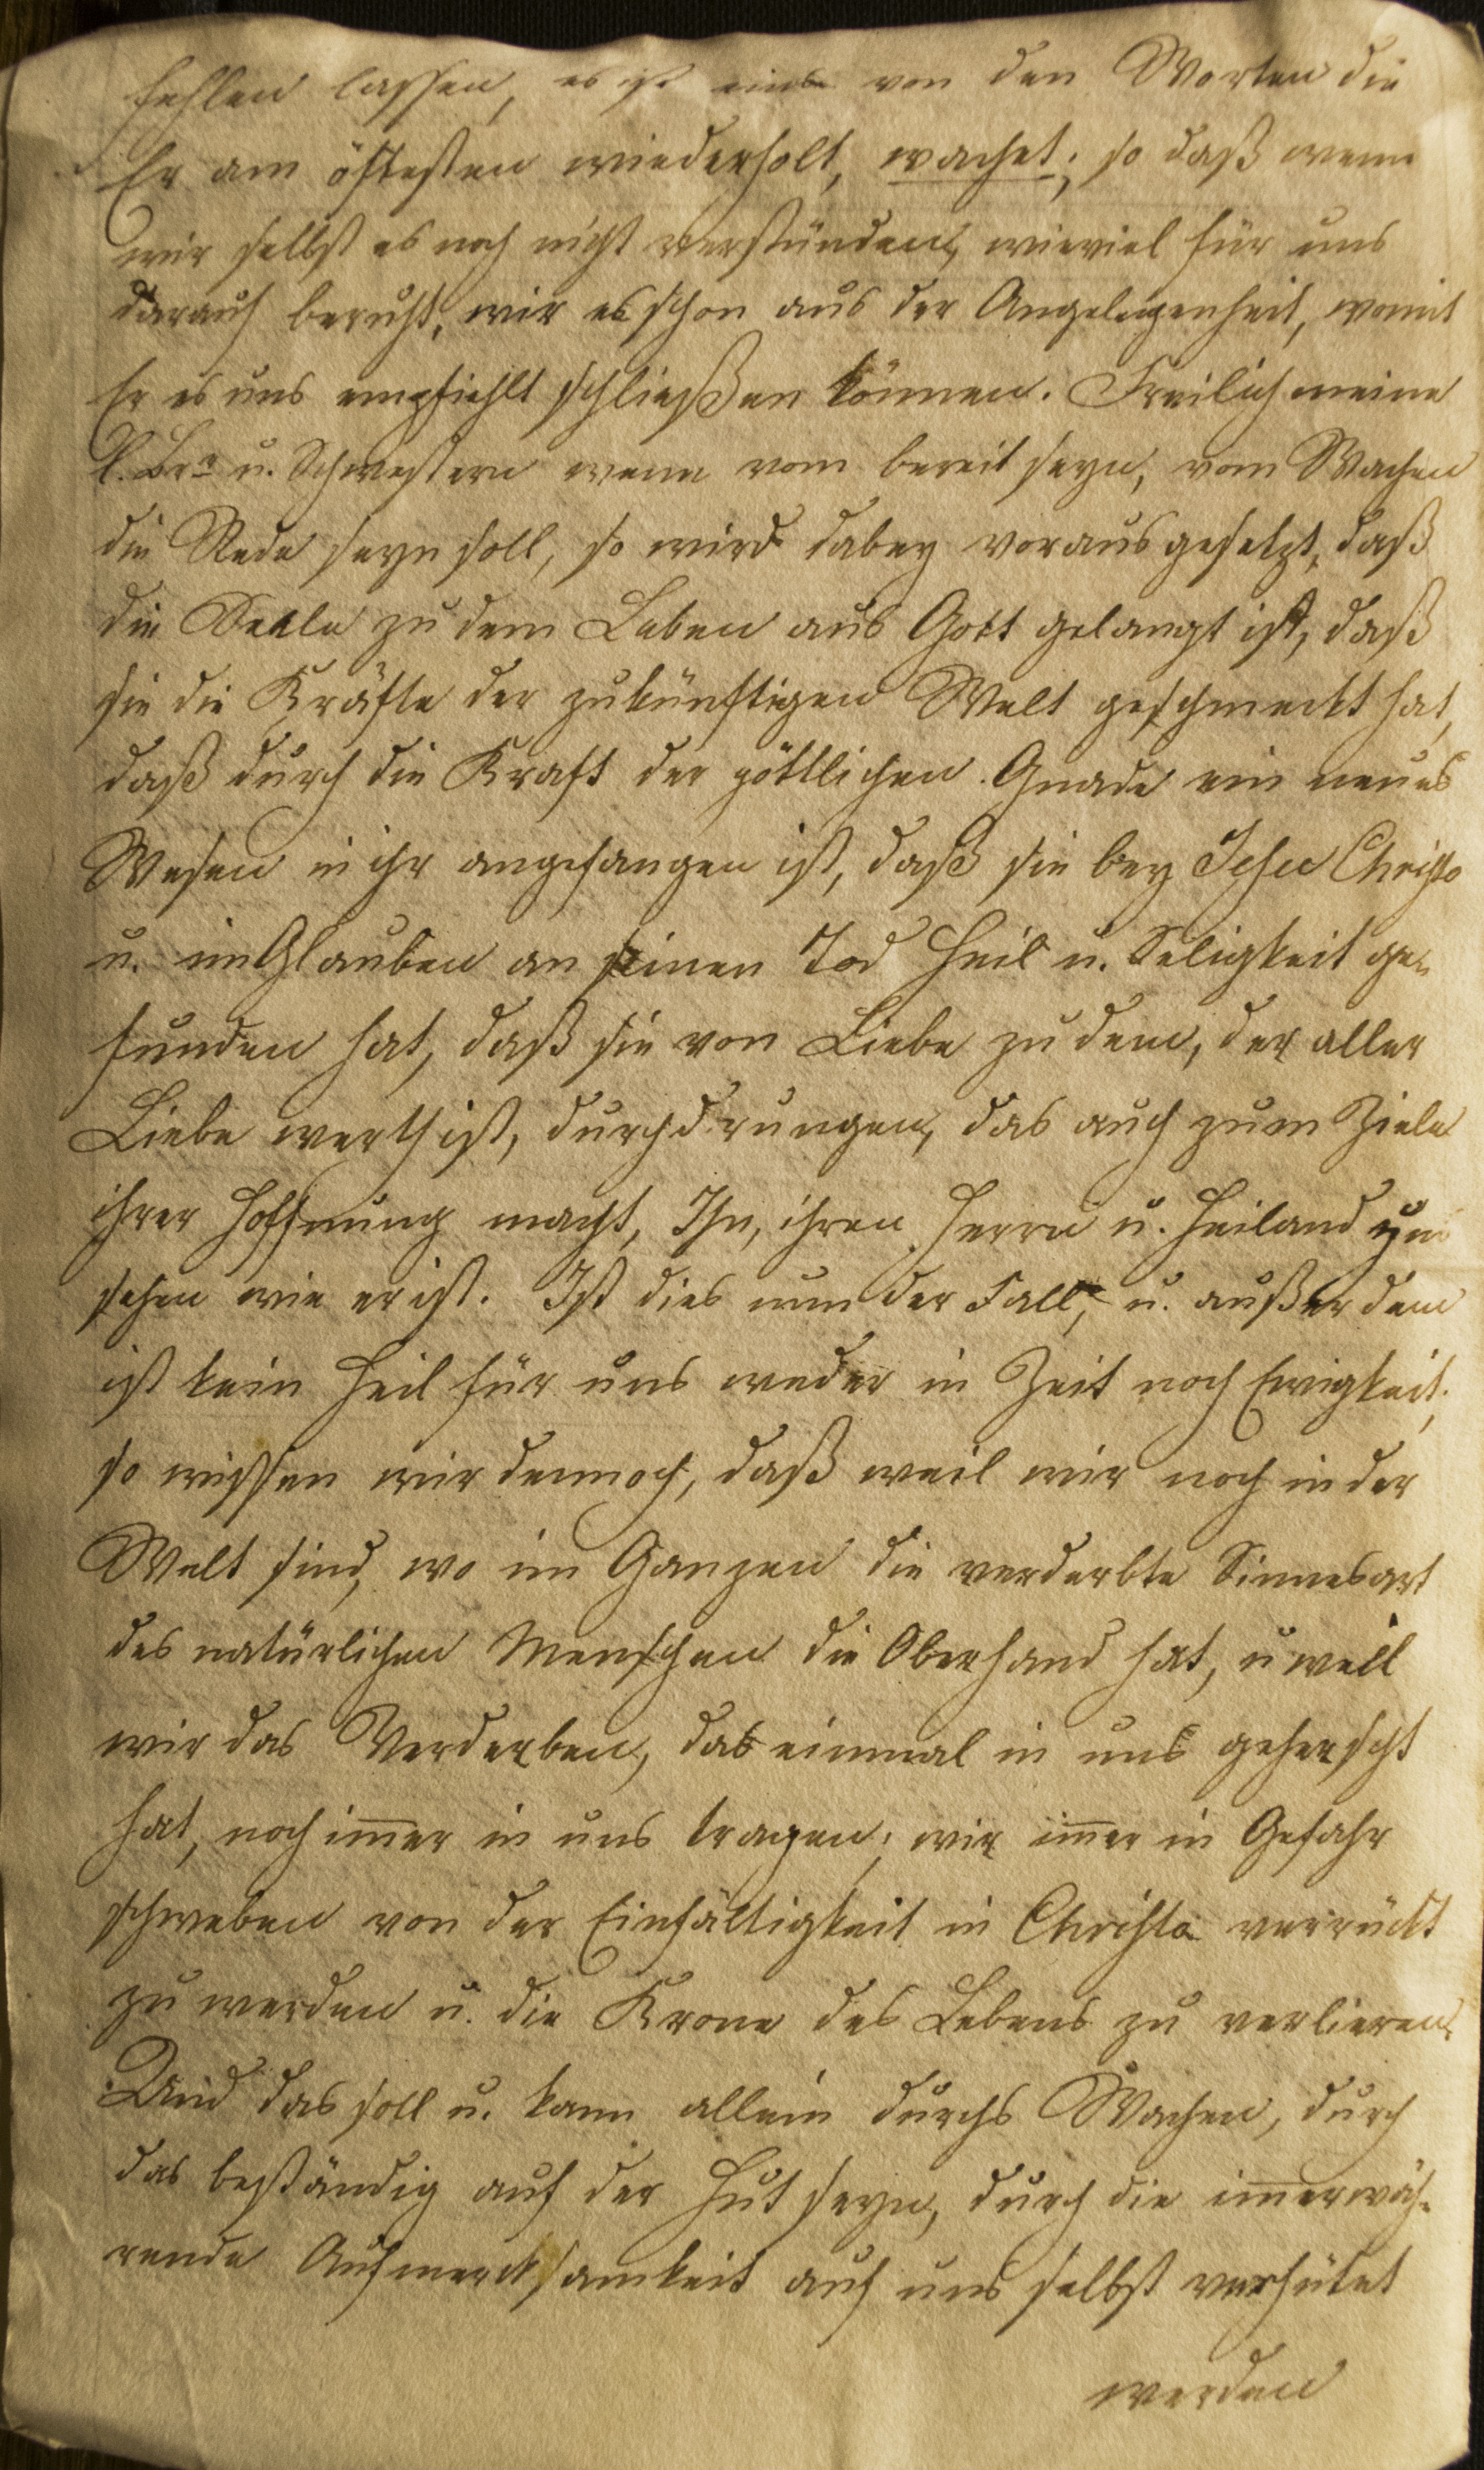 fehlen lassen, es ist eins von den Worten die
Er am öftesten wiederholt, wachet; so daß wenn
wir selbst es noch nicht verstünden, wieviel für uns
darauf beruht, wir es schon aus der Angelegenheit, womit
Er es uns empfiehlt schließen können. Freilich meine
l. Brr u. Schwestern wenn vom bereit seyn, vom Wachen
die Rede seyn soll, so wird dabey vorausgesetzt, daß
die Seele zu dem Leben aus Gott gelangt ist, daß
sie die Kräfte der zukünftigen Welt geschmeckt hat,
daß durch die Kraft der göttlichen Gnade ein neues
Wesen in ihr angefangen ist, daß sie bey Jesu Christo
u. im Glauben an seinen Tod Heil u. Seligkeit ge-
funden hat, daß sie von Liebe zu dem, der aller
Liebe werth ist, durchdrungen, das auch zum Ziele
ihrer Hoffnung macht, Ihn, ihren Herrn u. Heiland zu
sehen wie er ist. Ist dies nun der Fall, u. außer dem
ist kein Heil für uns weder in Zeit noch Ewigkeit;
so wissen wir dennoch, daß weil wir noch in der
Welt sind, wo im Ganzen die verderbte Sinnesart
des natürlichen Menschen die Oberhand hat, u weil
wir das Verderben, das einmal in uns geherscht
hat, noch im̅er in uns tragen; wir im̅er in Gefahr
schweben von der Einfältigkeit in Christo verrückt
zu werden u. die Krone des Lebens zu verlieren.
Und das soll u. kann allein durchs Wachen, durch
das beständig auf der Hut seyn, durch die im̅erwäh-
rende Aufmerksamkeit auf uns selbst verhütet
werden